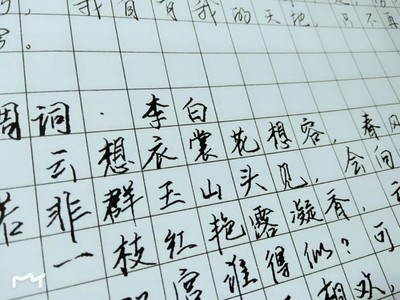 我有有我的天地,只不再
写。
调词·李白
云想衣裳花想容,春风
若非群玉山头见,会向
一枝红艳露凝香,
宫谁得似?可
想欢,